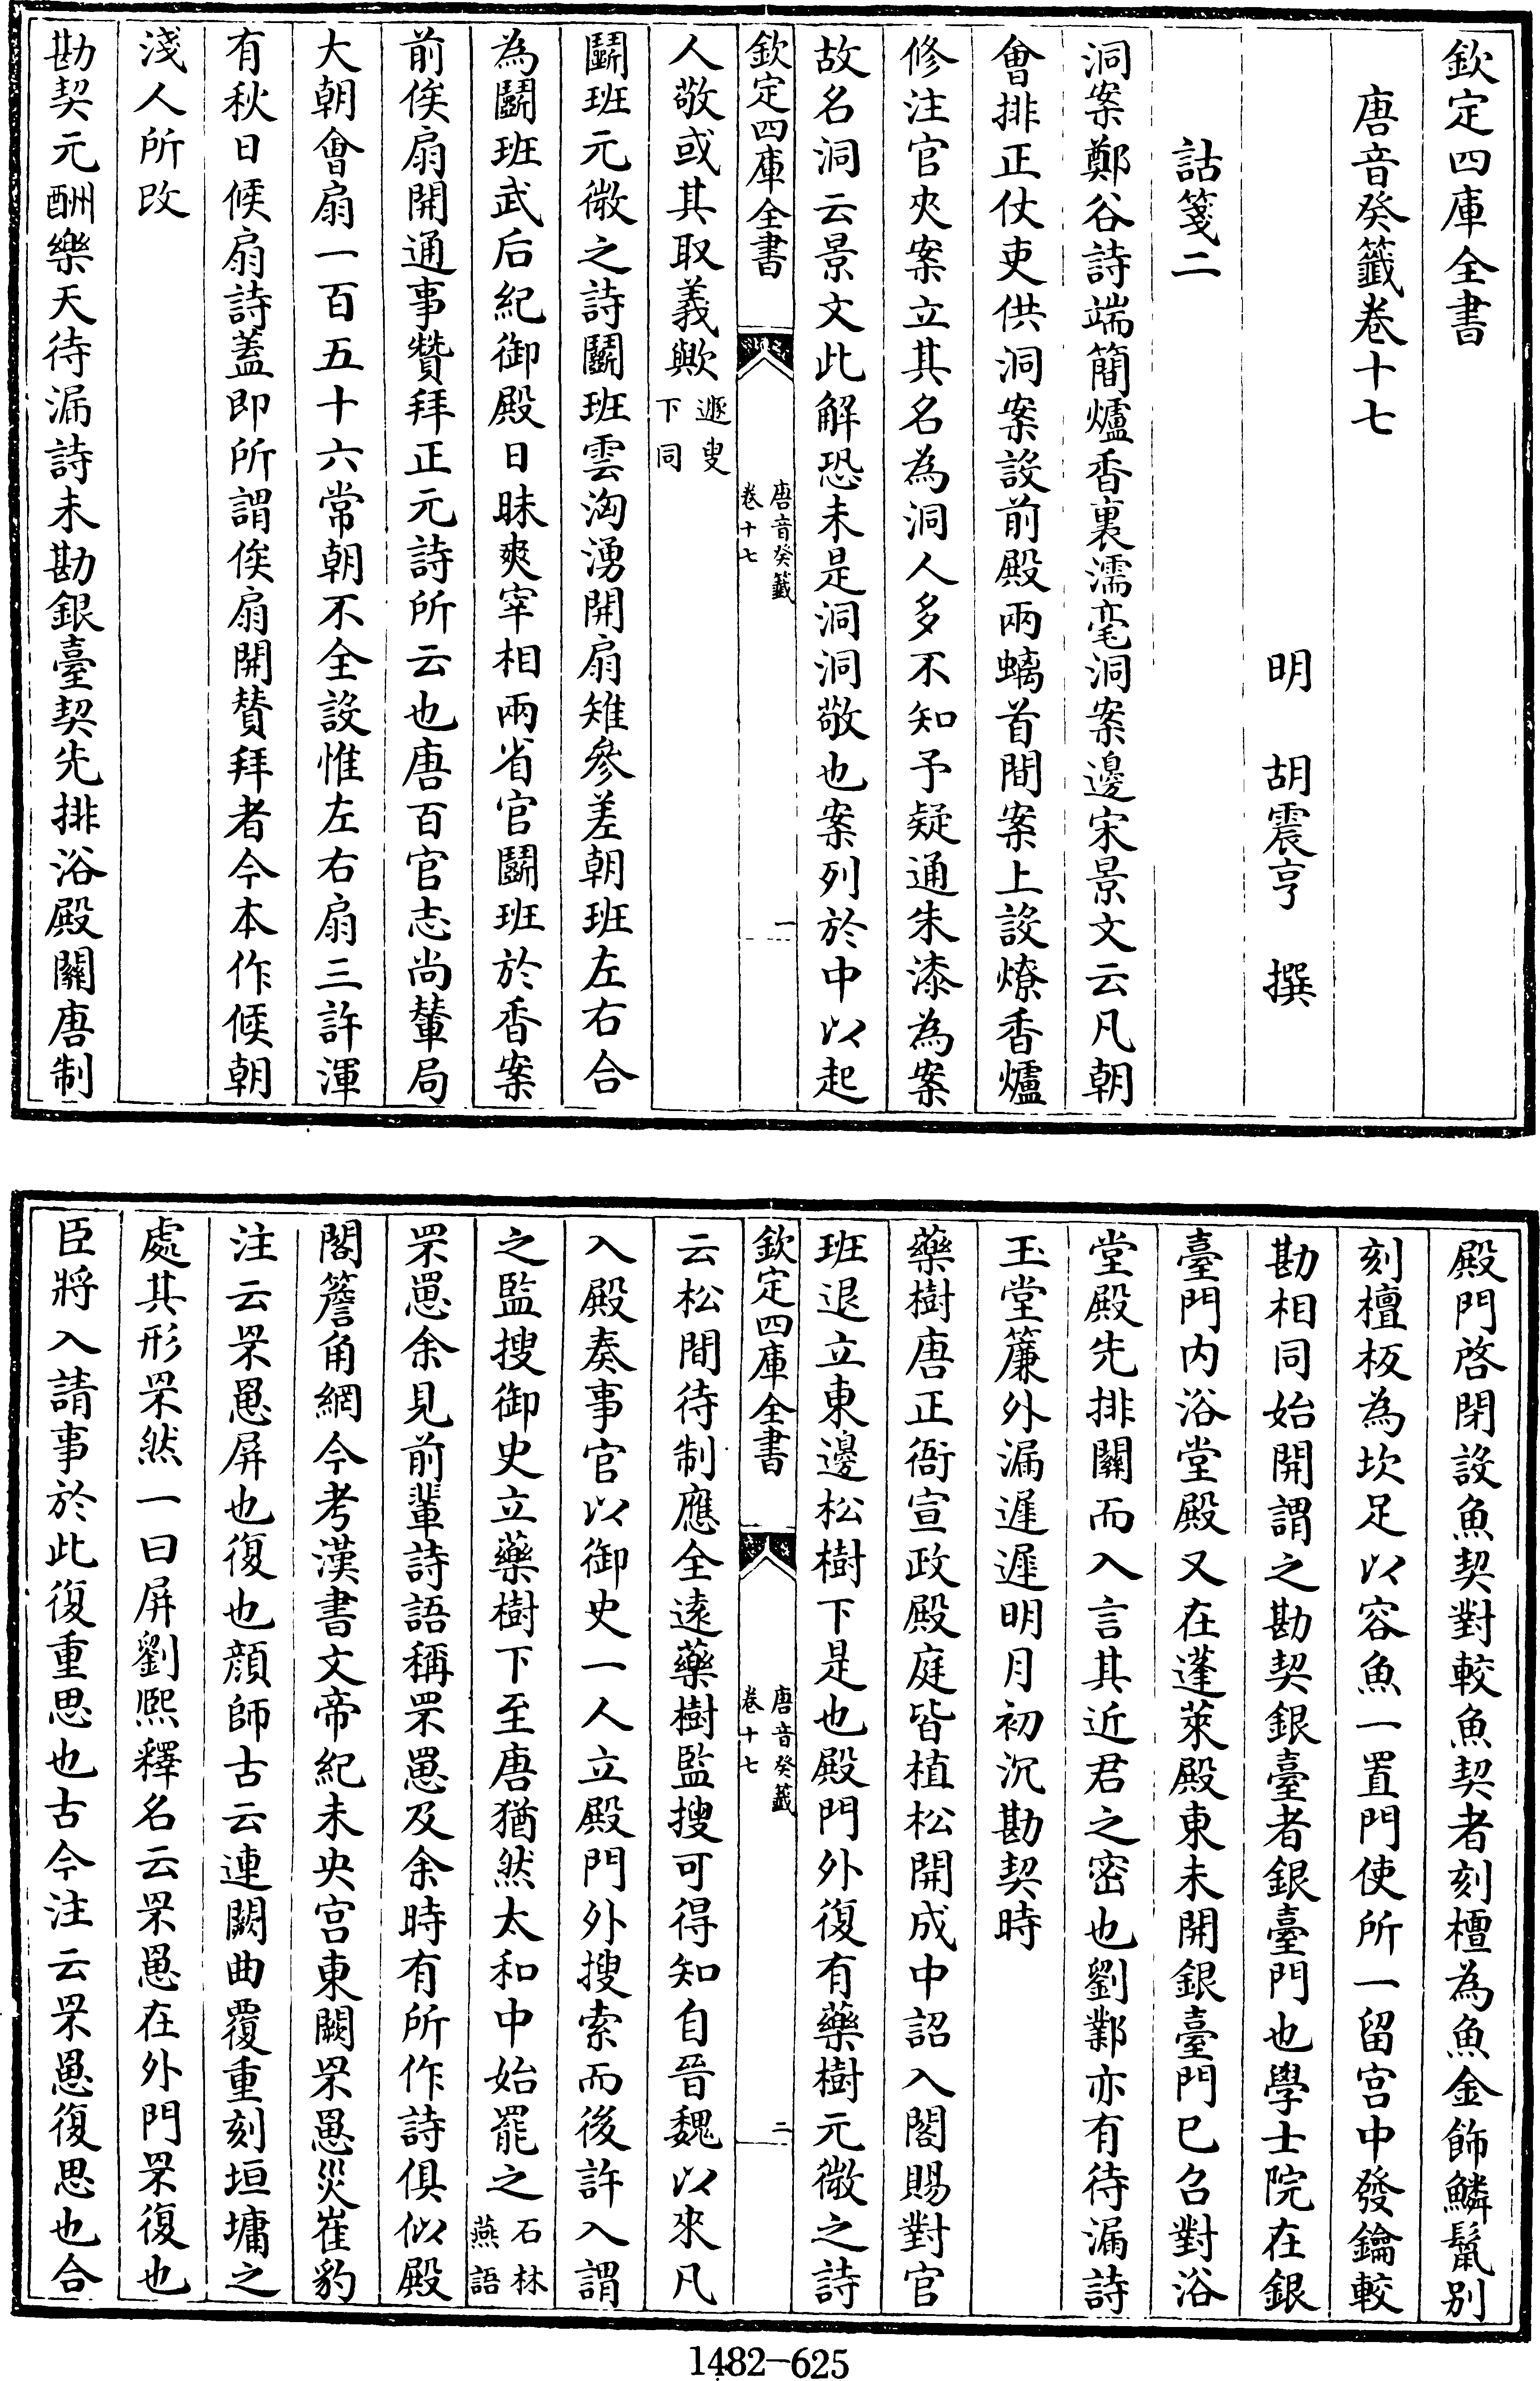 欽定四庫全書
唐音癸籤卷十七
明　胡震亨　撰
詁箋二
洞案鄭谷詩端簡爐香裏濡毫洞案邊宋景文云凡朝
會排正仗吏供洞案設前殿兩螭首間案上設燎香爐
修注官夾案立其名為洞人多不知予疑通朱漆為案
故名洞云景文此解恐未是洞洞敬也案列於中以起
欽定四庫全書
唐音癸籤
卷十七
一
人敬或其取義歟遯叟
下同
鬭班元微之詩鬭班雲洶湧開扇雉參差朝班左右合
為鬭班武后紀御殿日昧爽宰相兩省官鬭班於香案
前俟扇開通事贊拜正元詩所云也唐百官志尚輦局
大朝會扇一百五十六常朝不全設惟左右扇三許渾
有秋日候扇詩蓋即所謂俟扇開贊拜者今本作候朝
淺人所改
勘契元酬樂天待漏詩未勘銀臺契先排浴殿關唐制
殿門啓閉設魚契對較魚契者刻檀為魚金飾鱗鬛别
刻檀板為坎足以容魚一置門使所一留宫中發鑰較
勘相同始開謂之勘契銀臺者銀臺門也學士院在銀
臺門内浴堂殿又在蓬萊殿東未開銀臺門已召對浴
堂殿先排關而入言其近君之密也劉鄴亦有待漏詩
玉堂簾外漏遲遲明月初沉勘契時
藥樹唐正衙宣政殿庭皆植松開成中詔入閤賜對官
班退立東邊松樹下是也殿門外復有藥樹元微之詩
欽定四庫全書
唐音癸籤
卷十七
二
云松間待制應全遠藥樹監搜可得知自晉魏以來凡
入殿奏事官以御史一人立殿門外搜索而後許入謂
之監搜御史立藥樹下至唐猶然太和中始罷之石林
燕語
罘罳余見前輩詩語稱罘罳及余時有所作詩俱似殿
閣簷角網今考漢書文帝紀未央宫東闕罘罳災崔豹
注云罘罳屏也復也顔師古云連闕曲覆重刻垣墉之
處其形罘然一曰屏劉熙釋名云罘罳在外門罘復也
臣將入請事於此復重思也古今注云罘罳復思也合
1482-625